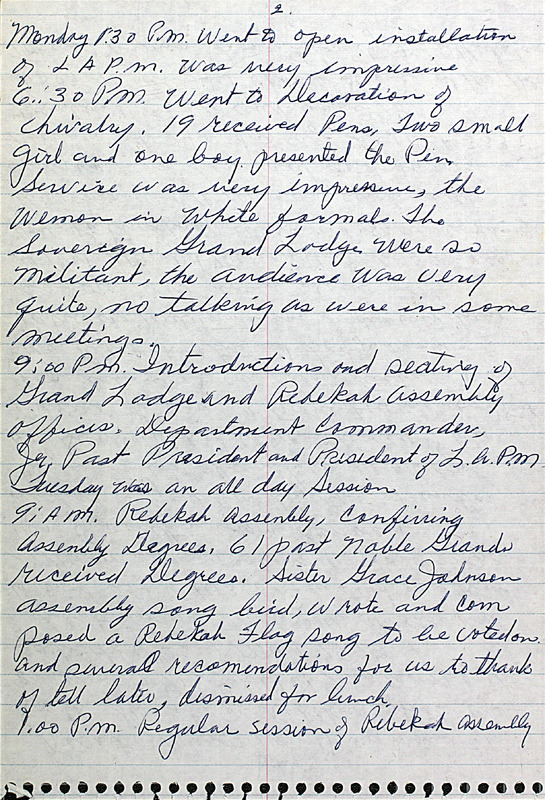 2.
Monday 1:30 P.M. Went to open installation
of L A P.M. Was very impressive
6:30 P.M. Went to Decoration of
Chivalry. 19 received Pens, Two small
girl and one boy presented the Pen
Service was very impressive, the
Wemon in White formals. The
Sovereign Grand Lodge Were so
Militant, the audience was very
quite, no talking as were in some
meetings.
9:00 P.M. Introductions and seating of
Grand Lodge and Rebekah Assembly
Officis. Department Commander,
Jr. Past President and President of L.A.P.M
Tuesday was an all day Session
9: A M. Rebekah Assembly, Confirring
Assembly Degrees. 61 past Noble Grands
received Degrees. Sister Grace Johnson
assembly song bird, Wrote and Com
posed a Rebekah Flag song to be voted on
and several recomendations for us to think
of tell later, dismissed for lunch,
1:00 P.M. Regular session of Rebekah Assembly